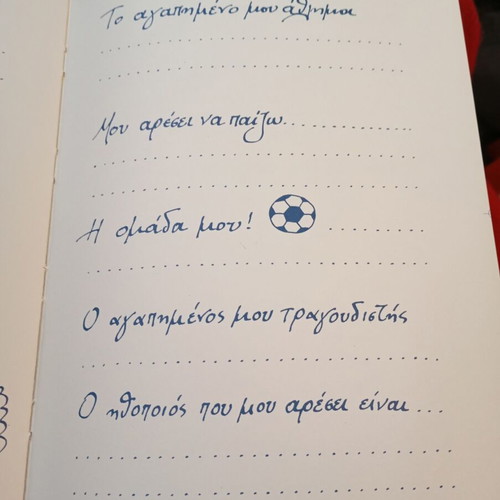 Το αγαπημένο μου άθλημα
Μου αρέσει να παίζω...
Η ομάδα μου!
Ο αγαπημένος μου τραγουδιστής
Ο ηθοποιός που μου αρέσει είναι...